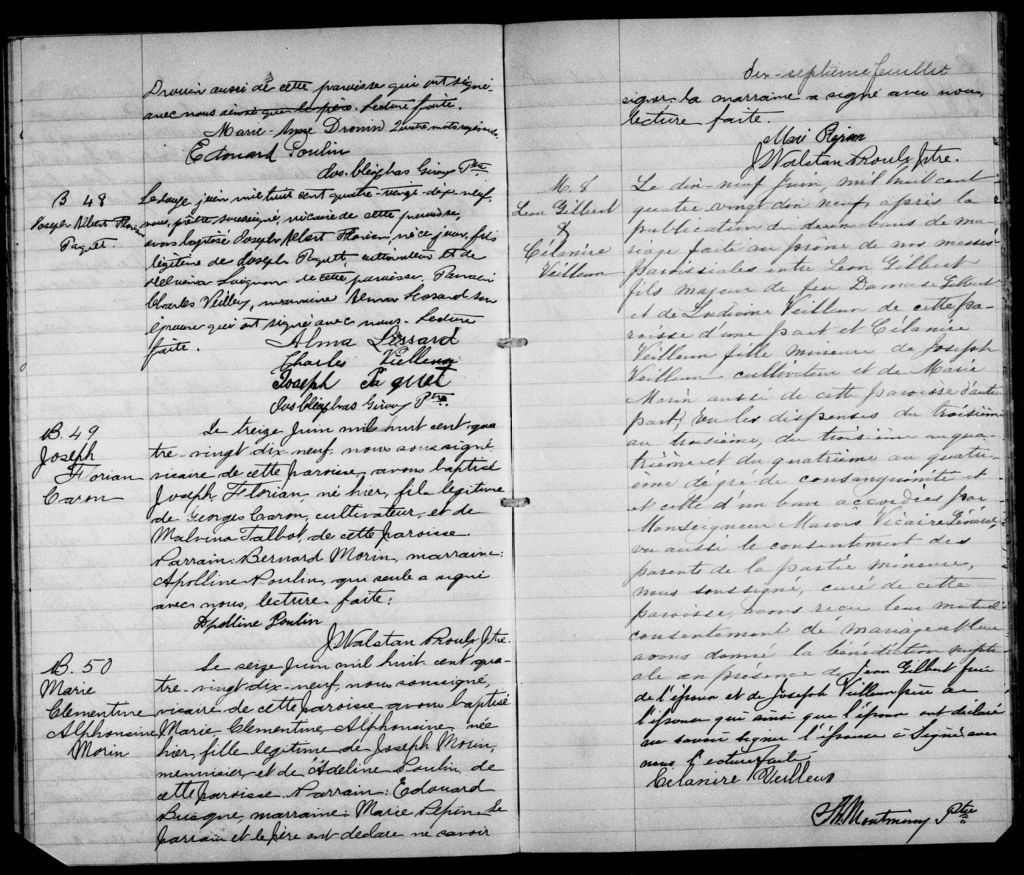 Drouin aussi de cette paroisse qui ont signé
avec nous ainsi que le père. Lecture faite.
Marie-Anne Drouin
Edouard Poulin
Giroux Ptre
B 48
Joseph Albert Florian
Paquet
Le douze juin, mil huit cent quatre-vingt-dix-neuf,
nous, prêtre, soussigné, vicaire de cette paroisse,
avons baptisé Joseph Albert Florian, né ce jour, fils
légitime de Joseph Paquet, cultivateur et de
de cette paroisse. Parrain
Charles Veilleux, marraine Alma Lessard son
épouse qui ont signé avec nous. Lecture
faite.
Alma Lessard
Charles Vielleux
Joseph Paquet
Giroux Ptre
B. 49
Joseph
Florian
Caron
Le treize Juin mil huit cent qua-
tre-vingt dix-neuf, nous soussigné
vicaire de cette paroisse, avons baptisé
Joseph, Florian, né hier, fils légitime
de Georges Caron, cultivateur, et de
Malvina Talbot, de cette paroisse
Parrain: Bernard Morin, marraine:
Apolline Poulin, qui seule a signé
avec nous, lecture faite:
Apolline Poulin
J. Walstan Proulx Ptre.
B. 50
Marie
Clementine
Alphonsine
Morin
Le seize Juin mil huit cent qua-
tre-vingt dix-neuf, nous soussigné,
vicaire de cette paroisse avons baptisé
Marie, Clementine, Alphonsine, née
hier, fille légitime de Joseph Morin,
menuisier, et de Adeline Poulin, de
cette paroisse. Parrain: Edouard
marraine: Marie Pépin. Le
parrain et le père ont déclaré ne savoir
dix-septième feuillet
signer. la marraine a signé avec nous,
lecture faite.
J. Walstan Proulx Ptre.
M. 8
Leon Gilbert
&
Célanire
Veilleux
Le dix-neuf Juin, mil huit cent
quatre vingt dix neuf, après la
publication de deux bans de ma-
riage faite au prône de nos messes
paroissiales entre Leon Gilbert
fils majeur de feu Damase Gilbert
et de Veilleux de cette pa-
roisse d'une part et Célanire
Veilleux fille mineure de Joseph
Veilleux cultivateur et de Marie
Morin aussi de cette paroisse d'autre
part; vu les dispenses du troisième
au troisième, du troisième au qua-
trième et du quatrième au quatri-
ème degré de consanguinité et
et celle d'un ban accordées par
Monseigneur Marois Vicaire Général
vu aussi le consentement des
parents de la partie mineure,
nous soussigné, curé de cette
paroisse, avons reçu leur mutuel
consentement de mariage et leur
avons donné la bénédiction nupti-
ale en présence de Jean Gilbert frère
de l'époux et de Joseph Veilleux père de
l'épouse qui ainsi que l'époux ont déclaré
ne savoir signer l'épouse a signé avec
nous Lecture faite
Célanire Veilleux
Montminy Ptre